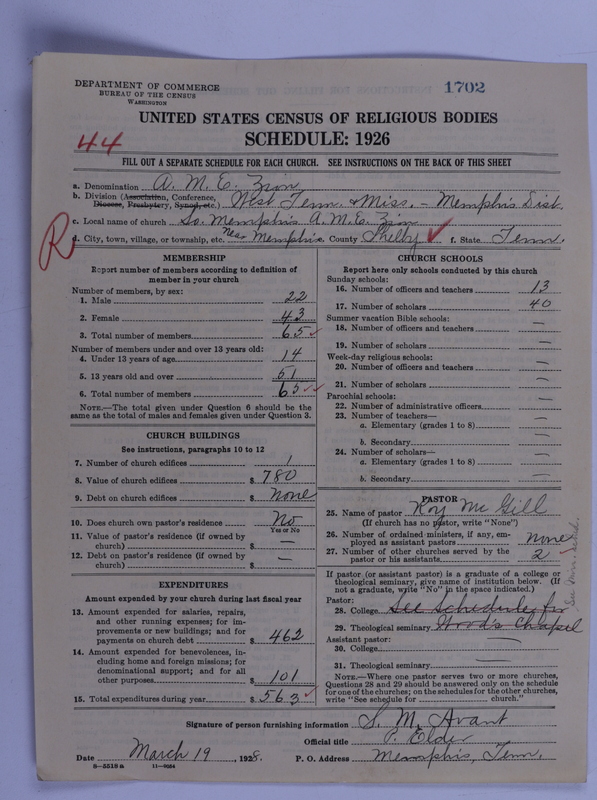 DEPARTMENT OF COMMERCE
BUREAU OF THE CENSUS
WASHINGTON
1702
UNITED STATES CENSUS OF RELIGIOUS BODIES
SCHEDULE: 1926
44
FILL OUT A SEPARATE SCHEDULE FOR EACH CHURCH. SEE INSTRUCTIONS ON THE BACK OF THIS SHEET
a. Denomination A. M. E. Zion
b. Division (Association, Conference, Diocese, Presbytery, Synod, etc.) West Tenn. & Miss. - Memphis Dist.
c. Local name of church So. Memphis A. M. E. Zion
R
d. City, town, village, or township, etc. Near Memphis e. County Shelby f. State Tenn.
MEMBERSHIP
Report number of members according to definition of
member in your church
Number of members, by sex:
1. Male 22
2. Female 43
3. Total number of members 65
Number of members under and over 13 years old:
4. Under 13 years of age 14
5. 13 years old and over 51
6. Total number of members 65
NOTE.—The total given under Question 6 should be the
same as the total of males and females given under Question 3.
CHURCH BUILDINGS
See instructions, paragraphs 10 to 12
7. Number of church edifices 1
8. Value of church edifices $ 780
9. Debt on church edifices $ None
10. Does church own pastor's residence No
Yes or No
11. Value of pastor's residence (if owned by
church) $ —
12. Debt on pastor's residence (if owned by
church) $ —
EXPENDITURES
Amount expended by your church during last fiscal year
13. Amount expended for salaries, repairs,
and other running expenses; for im-
provements or new buildings; and for
payments on church debt $ 462
14. Amount expended for benevolences, in-
cluding home and foreign missions; for
denominational support; and for all
other purposes $ 101
15. Total expenditures during year $ 563
CHURCH SCHOOLS
Report here only schools conducted by this church
Sunday schools:
16. Number of officers and teachers 13
17. Number of scholars 40
Summer vacation Bible schools:
18. Number of officers and teachers —
19. Number of scholars —
Week-day religious schools:
20. Number of officers and teachers —
21. Number of scholars —
Parochial schools:
22. Number of administrative officers —
23. Number of teachers—
a. Elementary (grades 1 to 8) —
b. Secondary —
24. Number of scholars—
a. Elementary (grades 1 to 8) —
b. Secondary —
PASTOR
25. Name of pastor Roy McGill
(If church has no pastor, write "None")
26. Number of ordained ministers, if any, em-
ployed as assistant pastors none
27. Number of other churches served by the
pastor or his assistants 2
If pastor (or assistant pastor) is a graduate of a college or
theological seminary, give name of institution below. (If
not a graduate, write "No" in the space indicated.)
Pastor:
28. College See schedule for
29. Theological seminary Wood's Chapel
Assistant pastor:
30. College —
31. Theological seminary —
NOTE.—Where one pastor serves two or more churches,
Questions 28 and 29 should be answered only on the schedule
for one of the churches; on the schedules for the other churches,
write "See schedule for church."
Signature of person furnishing information S. M. Avant
Official title P. Elder
Date March 19, 1928. P. O. Address Memphis, Tenn.
8—5519 a 11—9034